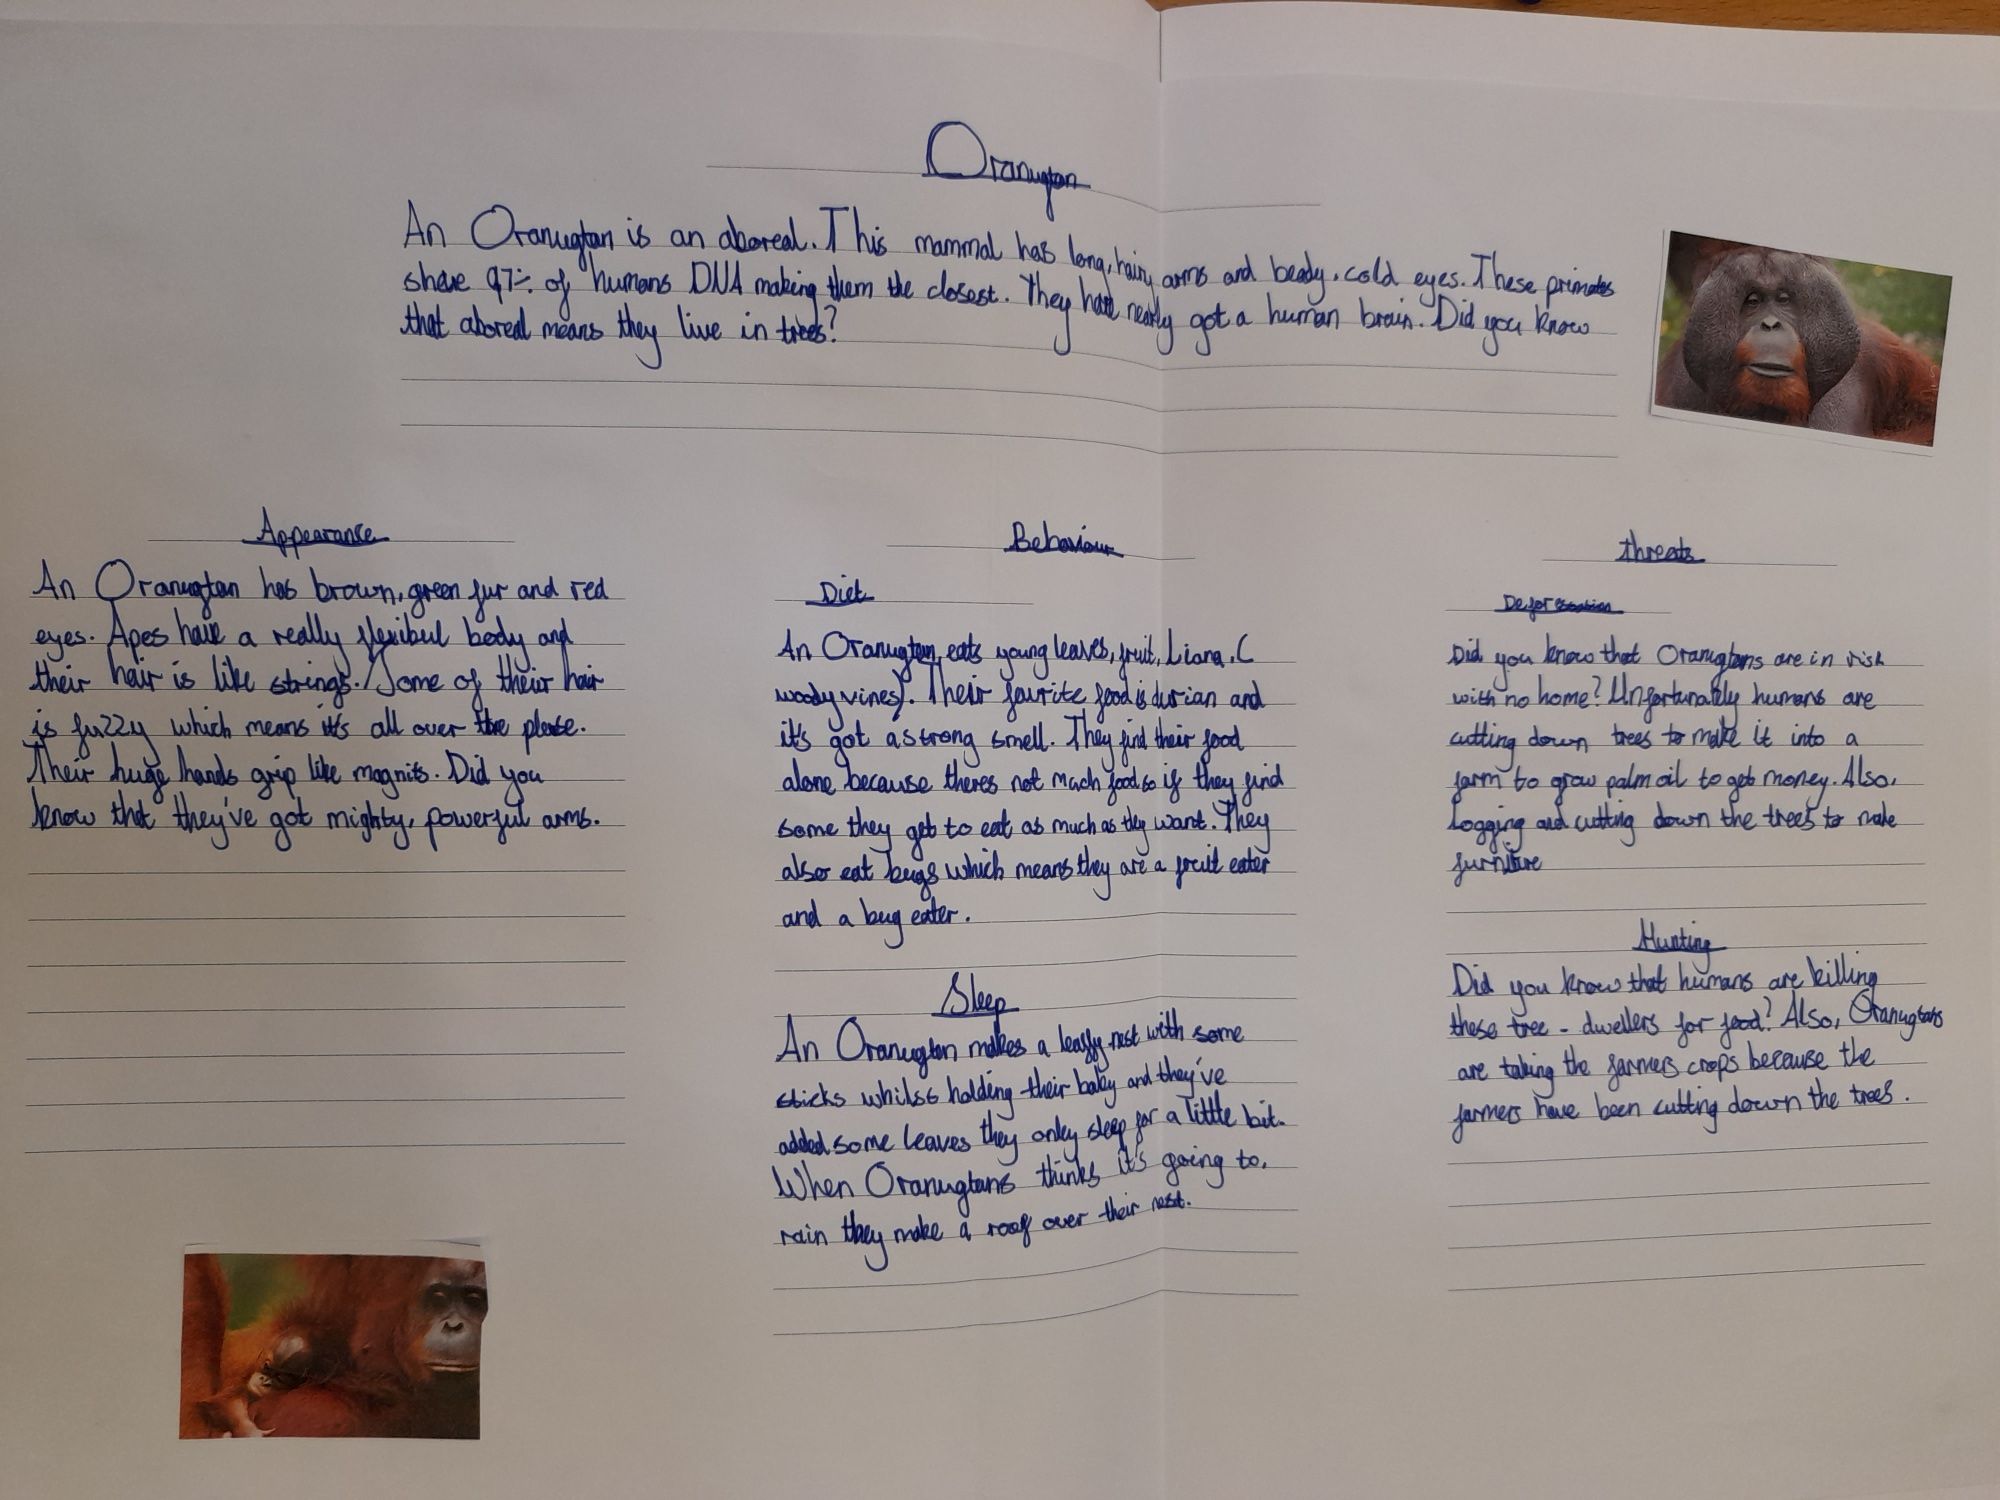 Oranugtan
An Oranugtan is an aboreal. This mammal has long, hairy arms and beady, cold eyes. These primates
share 97% of humans DNA making them the closest. They have nearly got a human brain. Did you know
that aboreal means they live in trees?
Appearance
An Oranugtan has brown, green fur and red
eyes. Apes have a really flexibul body and
their hair is like strings. Some of their hair
is fuzzy which means it's all over the place.
Their huge hands grip like magnits. Did you
know that they've got mighty, powerful arms.
Behaviour
Diet
An Oranugtan eats young leaves, fruit, Liana, (
woody vines). Their faurite food is durian and
it's got a strong smell. They find their food
alone because theres not much food so if they find
some they get to eat as much as they want. They
also eat bugs which means they are a fruit eater
and a bug eater.
Sleep
An Oranugtan makes a leaffy nest with some
sticks whilst holding their baby and they've
added some leaves they only sleep for a little bit.
When Oranugtans thinks it's going to.
rain they make a roof over their nest.
Threats
Deforestation
Did you know that Oranugtans are in risk
with no home? Unfortunately humans are
cutting down trees to make it into a
farm to grow palm oil to get money. Also,
logging and cutting down the trees to make
furniture
Hunting
Did you know that humans are killing
these tree - dwellers for food? Also, Oranugtans
are taking the farmers crops because the
farmers have been cutting down the trees.